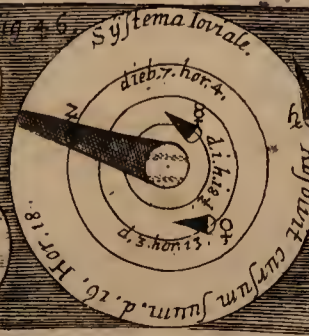 Fig. 46.
Syſtema Ioviale.
dieb. 7. hor. 4.
d. i. h. 18 ½
d. 3. hor. 13.
Abſolvit curſum ſuum. d. 16. Hor. 18.
♃
♄